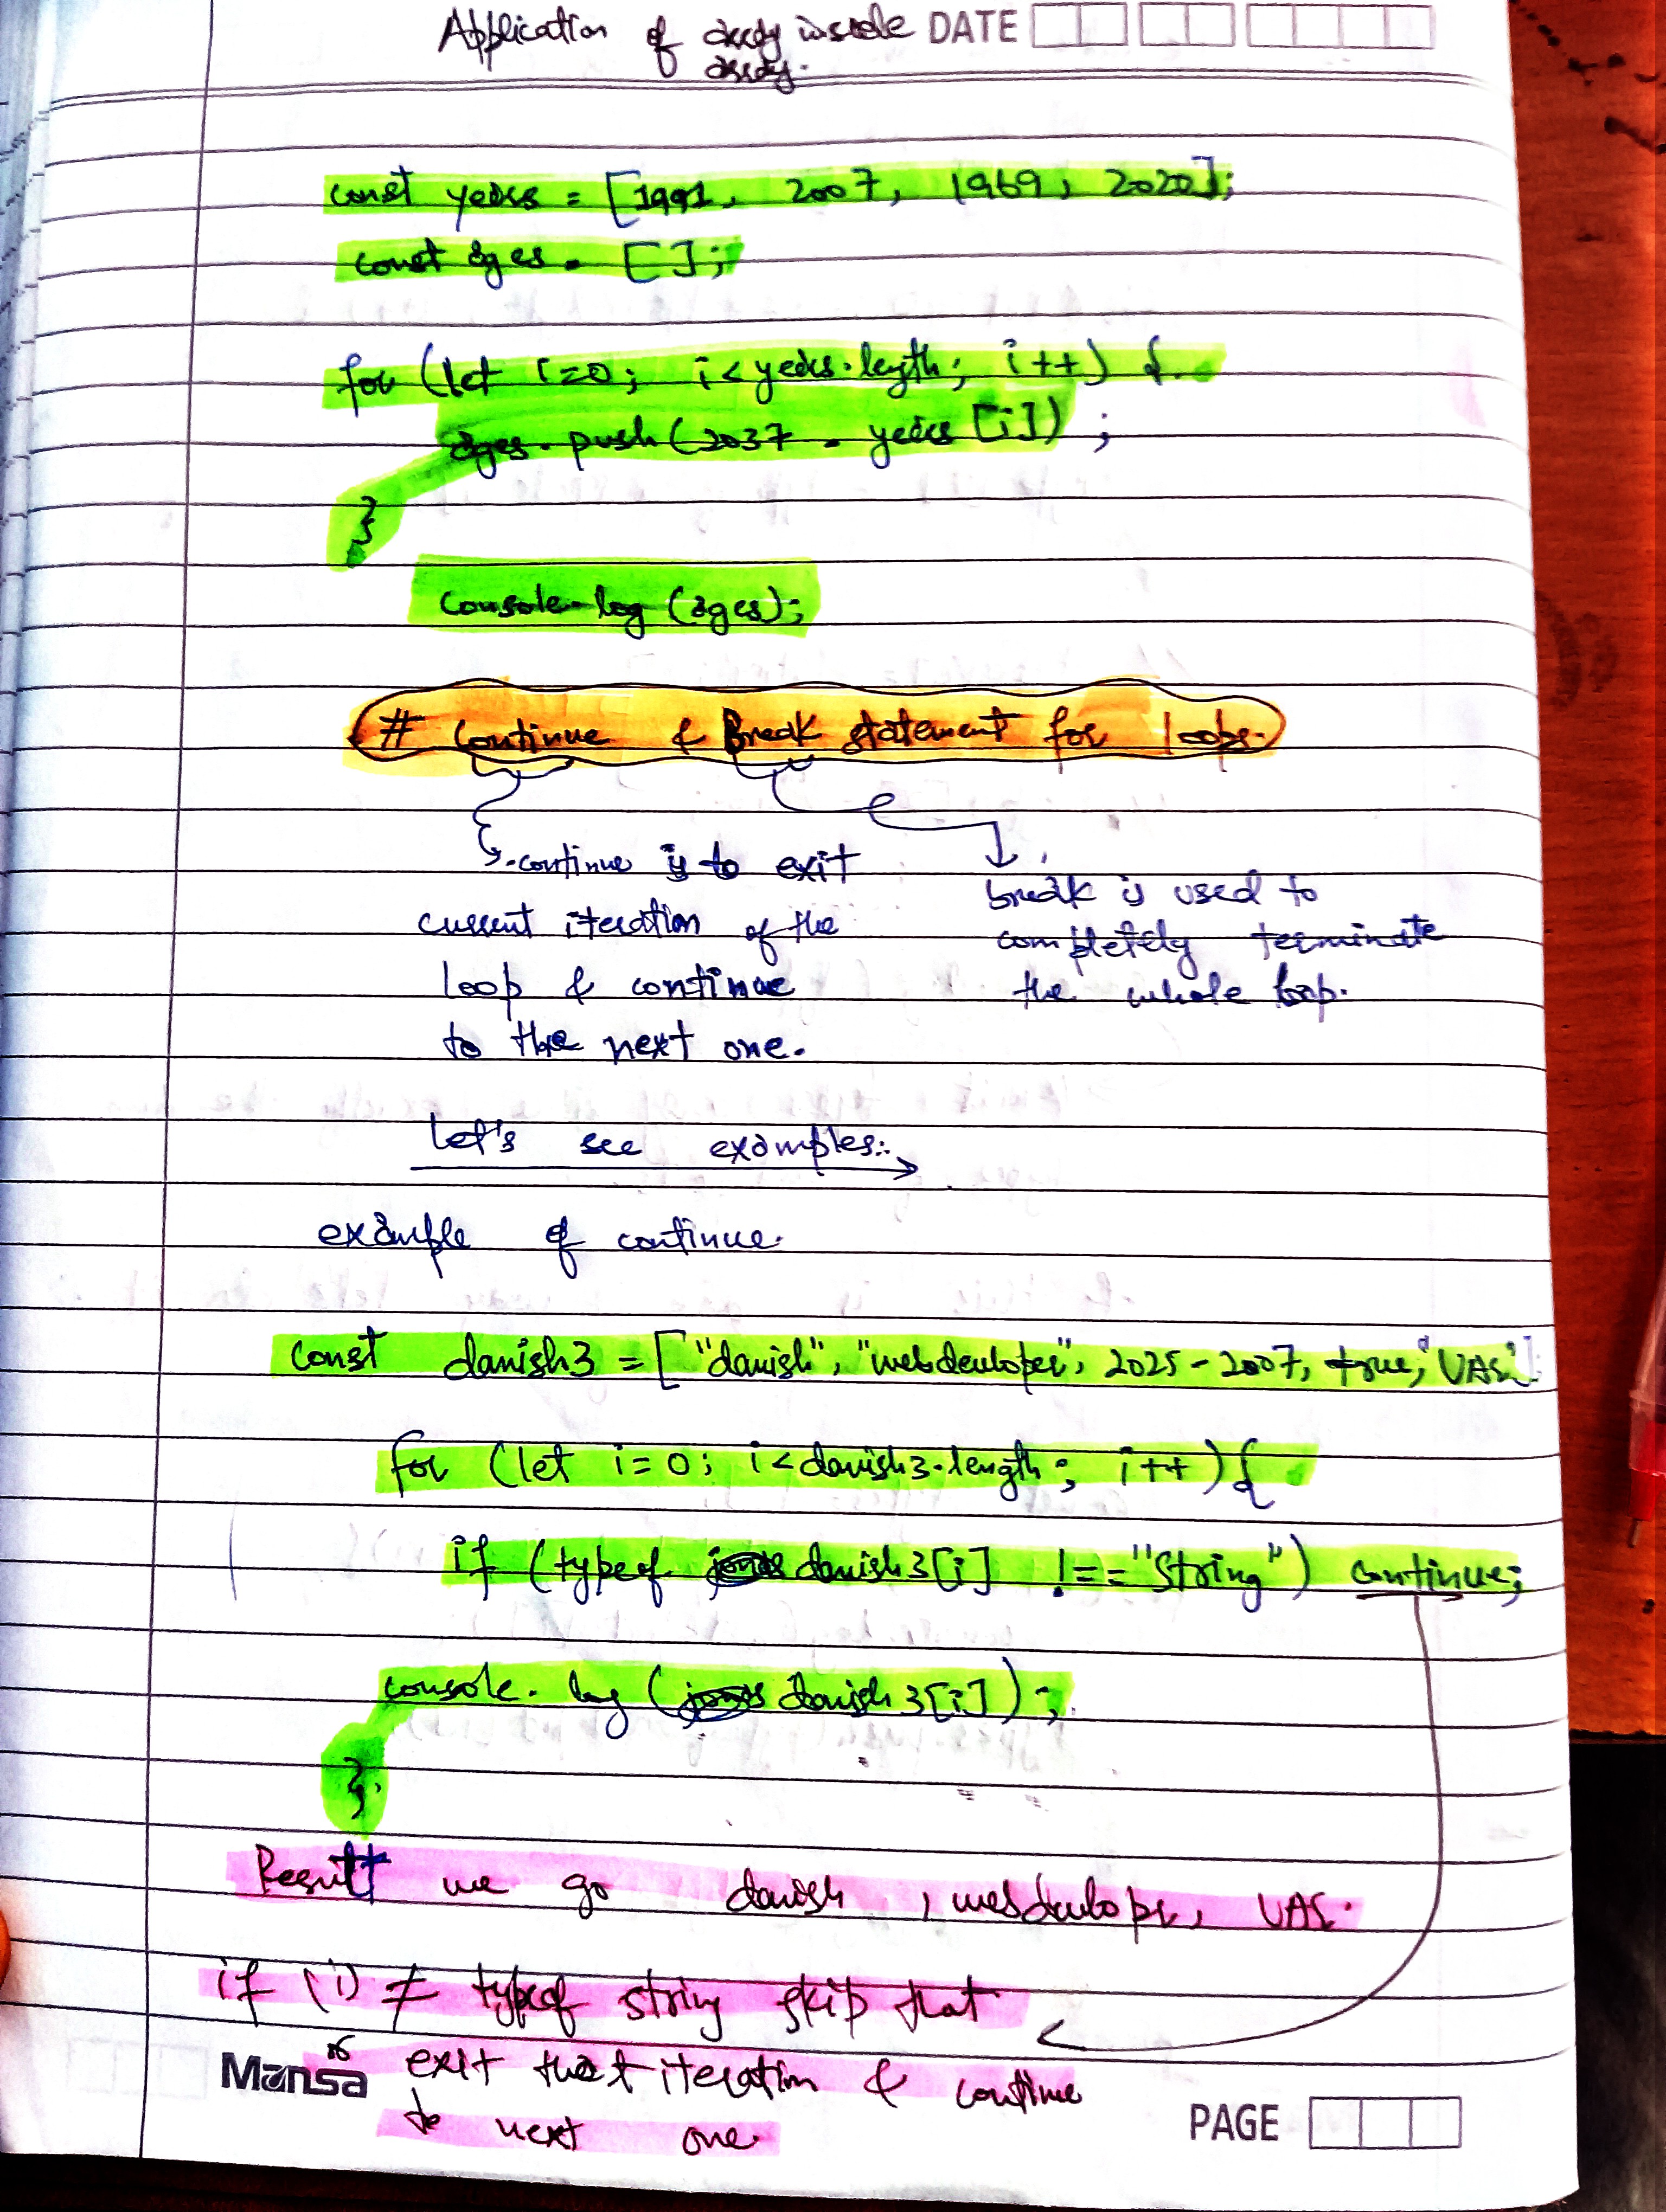 Application of array inside DATE
array.
const years = [1991, 2007, 1969, 2020];
const ages = [];
for (let i=0; i<years.length; i++) {
ages.push(2037 - years[i]);
}
console.log(ages);
# Continue & Break statement for loops.
continue is to exit
current iteration of the
loop & continue
to the next one.
break is used to
completely terminate
the whole loop.
Let's see examples:
example of continue.
const danish3 = ["danish", "webdevloper", 2025-2007, true,
for (let i=0; i<danish3.length; i++){
if (typeof danish3[i] !== "String") continue;
console.log(danish3[i]);
}
Result we go danish, webdevloper,
if (i) ≠ typeof string skip that
Mansa exit that iteration & continue
to next one.
PAGE